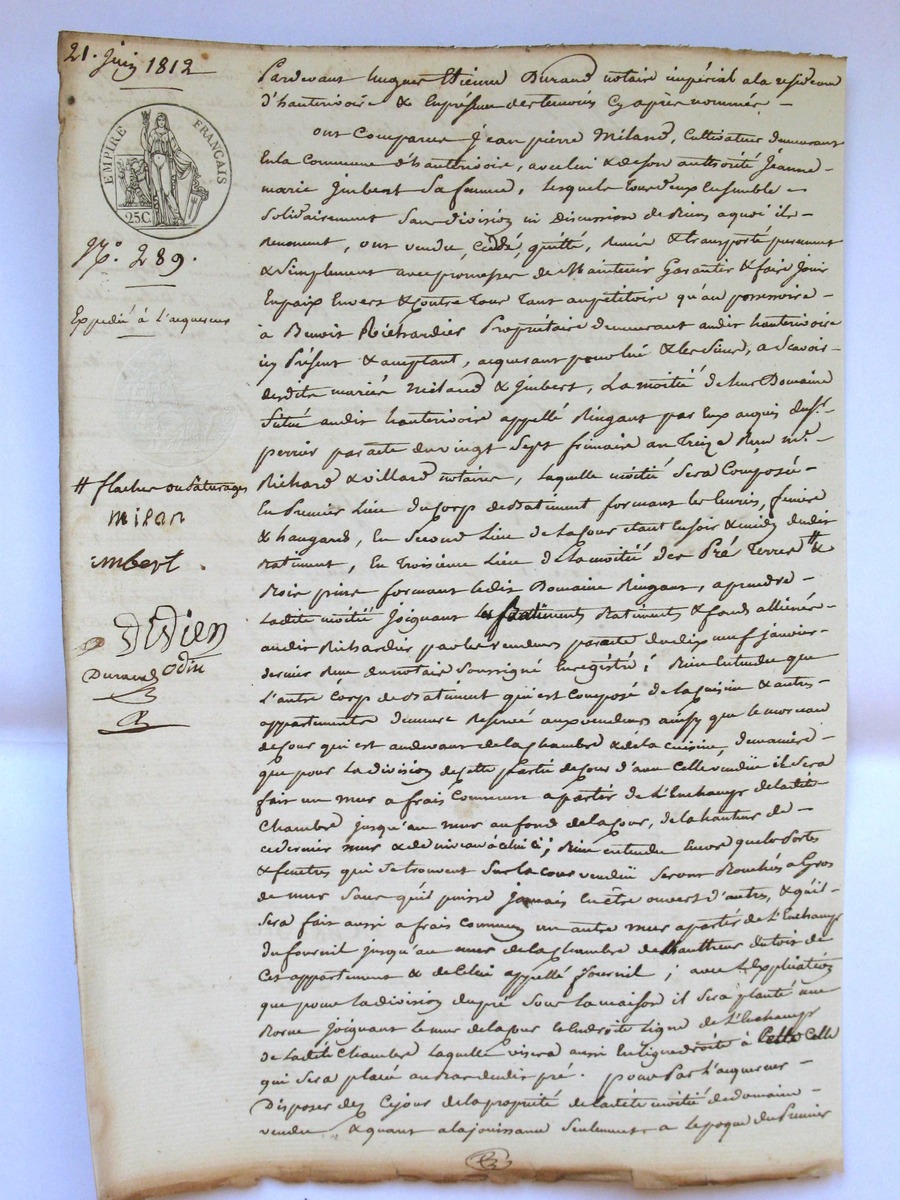 21. juin 1812
EMPIRE FRANÇAIS
25C.
Nº. 289.
Expedié à L'acquereur
# flaches ou Paturages
milan
imbert
Didien
Durand Odin
Pardevant hugues Etienne Durand notaire impérial a la residence
d'hauterivoire & En présence des temoins Cy après nommés –
ont Comparu Jean pierre Miland, Cultivateur demeurant
En la Commune d'hauterivoire, avec lui & de son authorité Jeanne
marie Jmbert Sa femme, Lesquels tous deux Ensemble –
Solidairement Sans division ni discussion de Biens a quoi ils
Renoncent, ont vendu, cédé, quitté, Remis & transporté purement
& Simplement avec promesse de Maintenir Garantir & faire Jouir
En paix Envers & Contre Tous Tant au petitoire qu'au possessoire –
à Benoit Richardier Propriétaire demeurant audit hauterivoire
ici Présent & acceptant, acquerant pour lui & les Siens, a Scavoir –
desdits mariés Miland & Jmbert, La moitié de leur Domaine
Situé audit hauterivoire appellé Ringant par Eux acquis du Sr.
perrier par acte du vingt Sept frimaire an Treize Reçu Me.
Richard & villard notaires, Laquelle moitié Sera Composée –
En Premier Lieu du Corp de Batiment formant les Ecuries, feniere
& hangard, En Second Lieu de la Cour étant En soir & midi dudit
Batiment, En Troisième Lieu de la moitié des Pré Terres # &
Bois pins formant ledit Domaine Ringant, a prendre –
Ladite moitié Joignant les Batiments & fonds alliénés –
audit Richardier par les vendeurs par acte du dix neuf janvier –
dernier Reçu du notaire Soussigné Enregistré; Bien Entendu que
L'autre Corp de Batiment qui est Composé de la Cuisine & autres –
appartements demeure Reservé aux vendeurs ainsy que le morceau
de Cour qui est audevant de la Chambre & de la Cuisine, de maniere –
que pour La division de cette partie de Cour d'avec Celle vendüe il Sera
fait un mur a frais Communs a partir de L'Enchamp de ladite
Chambre Jusqu'au mur au fond de la Cour, de la hauteur de –
ce dernier mur & de niveau à celui ci; Bien entendu Encore que les Portes
& fenêtres qui Se trouvent Sur la Cour vendüe Seront Bouchés a Gros
de mur Sans qu'il puisse Jamais En être ouvert d'autres, & qu'il –
Sera fait aussi a frais Communs un autre mur a partir de L'Enchamp
du fournil Jusqu'au mur de la Chambre de hautheur du toit de
Cet appartement & de Celui appellé fournil; avec Explication
que pour la division du pré Sous la maison il Sera planté une
Borne Joignant le mur de la Cour En droite Ligne de L'Enchamp
de Ladite Chambre Laquelle visera aussi En Ligne droite à Celle
qui Sera placé au Bas dudit pré. pour Par L'acquereur –
Disposer dez Cejour de la propriété de ladite moitié de domaine –
vendue & quant a la jouissance Seulement a l'epoque du Premier